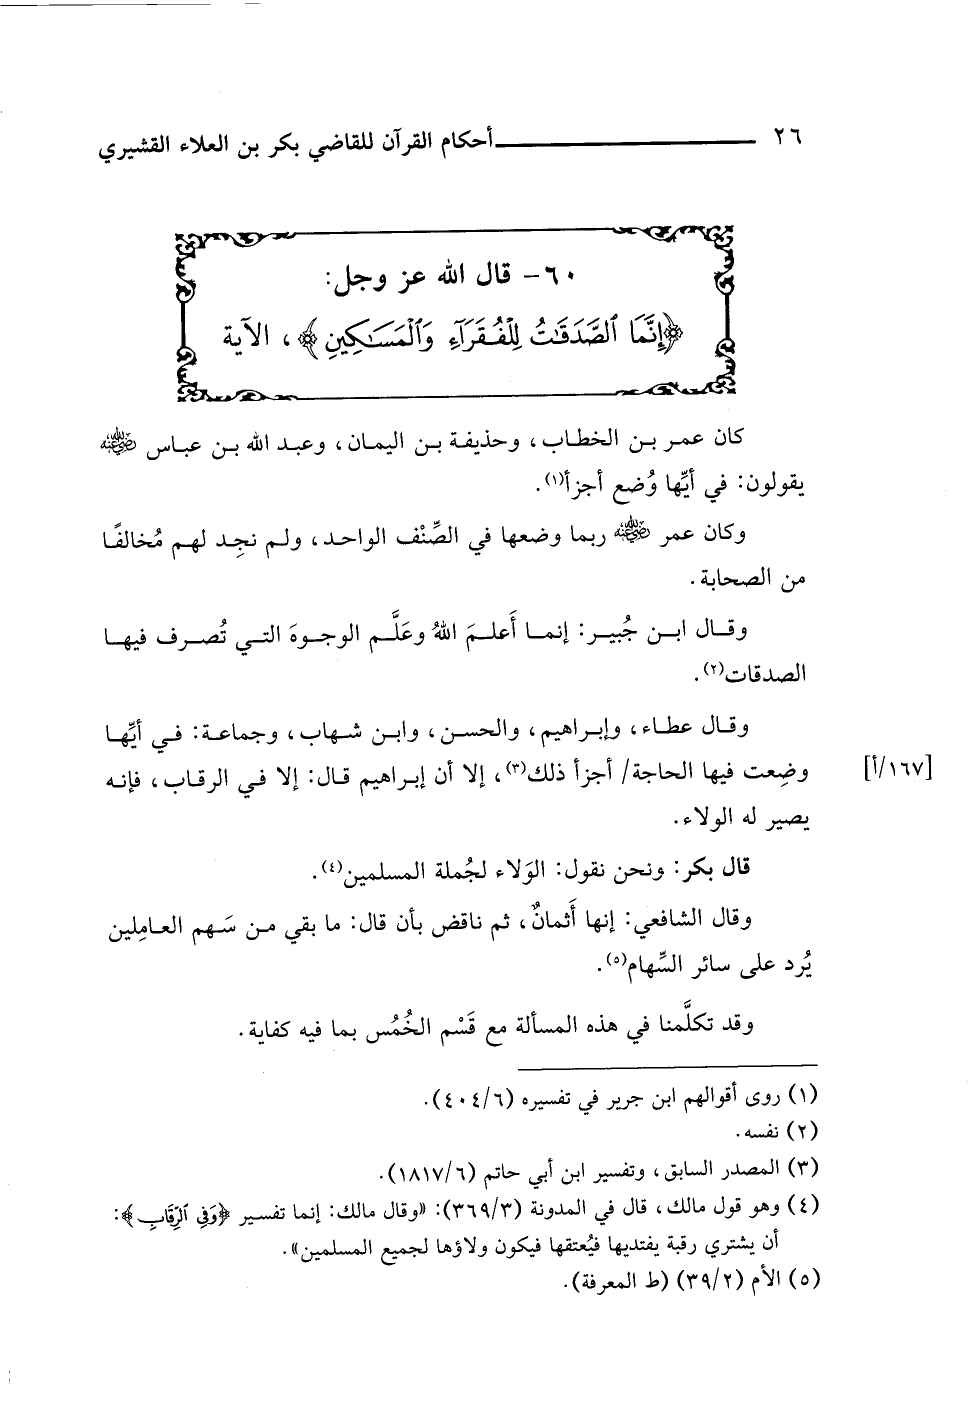 ٢٦ أحكام القرآن للقاضي بكر بن العلاء القشيري
٦٠- قال الله عز وجل:
﴿إِنَّمَا ٱلصَّدَقَٰتُ لِلْفُقَرَآءِ وَٱلْمَسَٰكِينِ﴾، الآية
كان عمر بن الخطاب، وحذيفة بن اليمان، وعبد الله بن عباس رضي الله عنه
يقولون: في أيِّها وُضع أجزأ(١).
وكان عمر رضي الله عنه ربما وضعها في الصِّنْف الواحد، ولم نجِد لهم مُخالفًا
من الصحابة.
وقال ابن جُبير: إنما أَعلمَ اللهُ وعَلَّم الوجوهَ التي تُصرف فيها
الصدقات(٢).
وقال عطاء، وإبراهيم، والحسن، وابن شهاب، وجماعة: في أيِّها
وضِعت فيها الحاجة/ أجزأ ذلك(٣)، إلا أن إبراهيم قال: إلا في الرقاب، فإنه
[١٦٧/أ]
يصير له الولاء.
قال بكر: ونحن نقول: الوَلاء لجُملة المسلمين(٤).
وقال الشافعي: إنها أَثمانٌ، ثم ناقض بأن قال: ما بقي من سَهم العامِلين
يُرد على سائر السِّهام(٥).
وقد تكلَّمنا في هذه المسألة مع قَسْم الخُمُس بما فيه كفاية.
(١) روى أقوالهم ابن جرير في تفسيره (٤٠٤/٦).
(٢) نفسه.
(٣) المصدر السابق، وتفسير ابن أبي حاتم (١٨١٧/٦).
(٤) وهو قول مالك، قال في المدونة (٣٦٩/٣): «وقال مالك: إنما تفسير ﴿وَفِي ٱلرِّقَابِ﴾:
أن يشتري رقبة يفتديها فيُعتقها فيكون ولاؤها لجميع المسلمين».
(٥) الأم (٣٩/٢) (ط المعرفة).